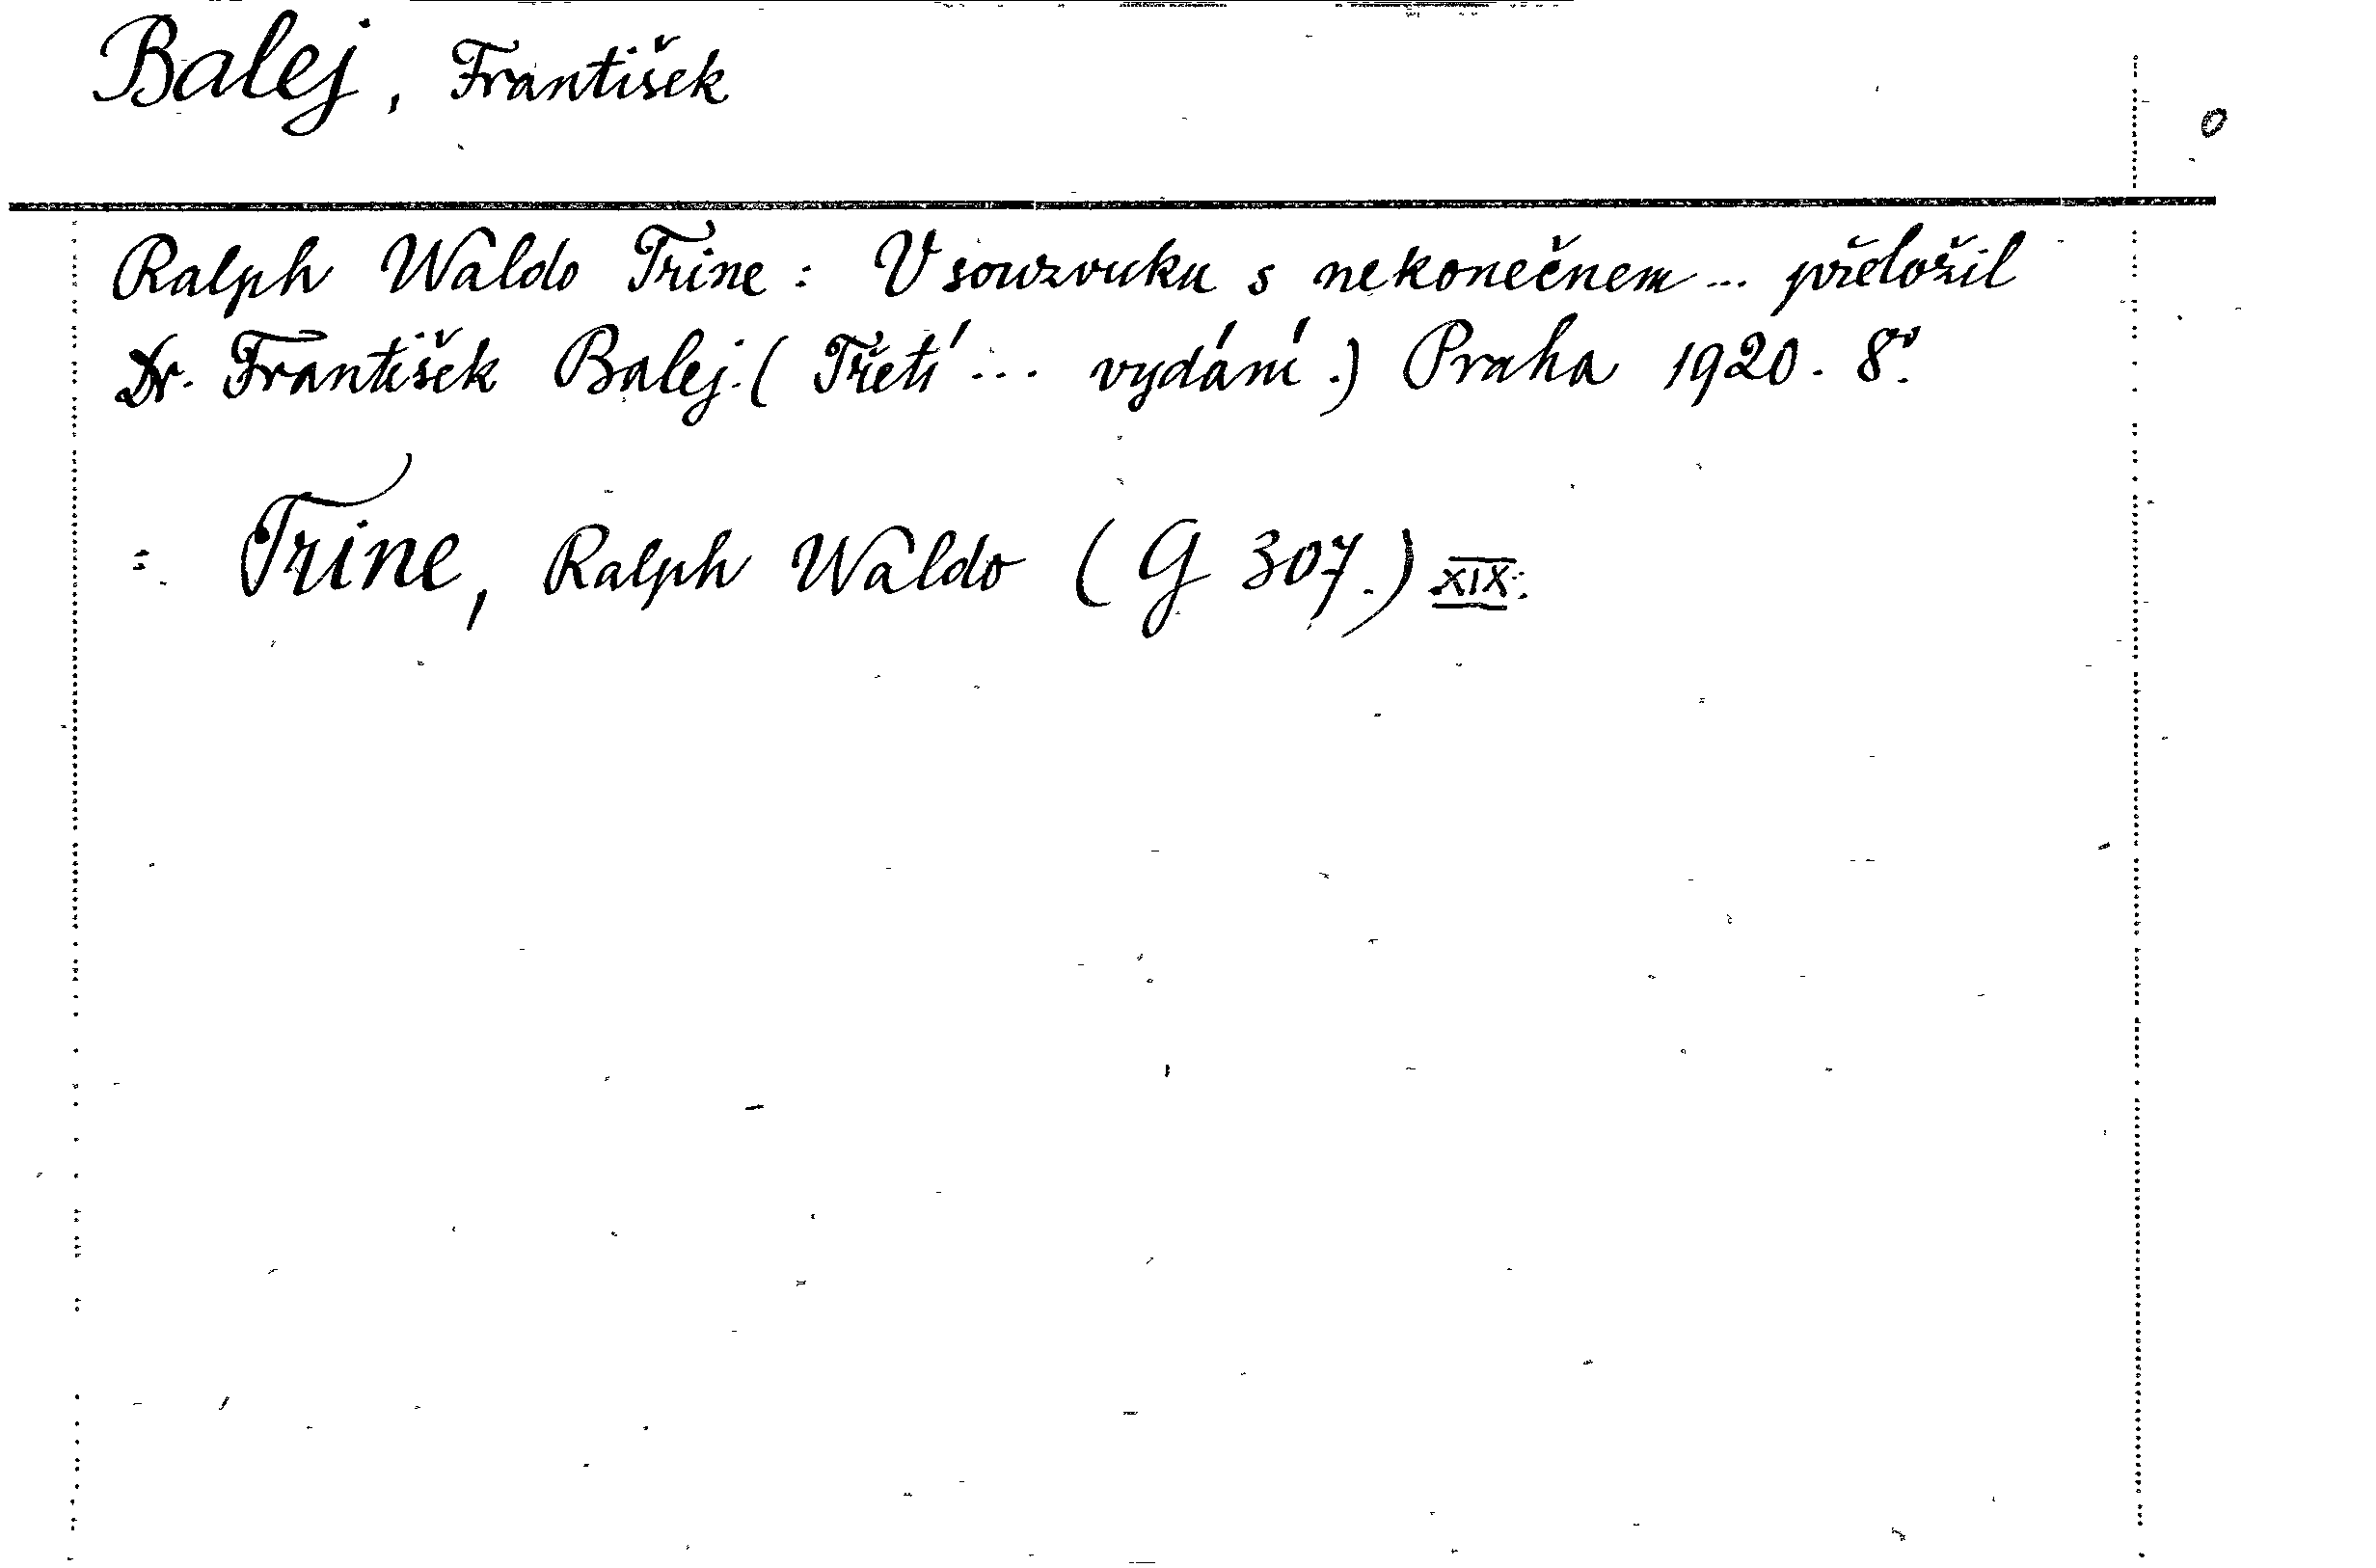 Balej, František
Ralph Waldo Trine: V souzvuku s nekonečnem... přeložil
Dr. František Balej. (Třetí... vydání.) Praha 1920. 8°.
= Trine, Ralph Waldo (G 307.) XIX.